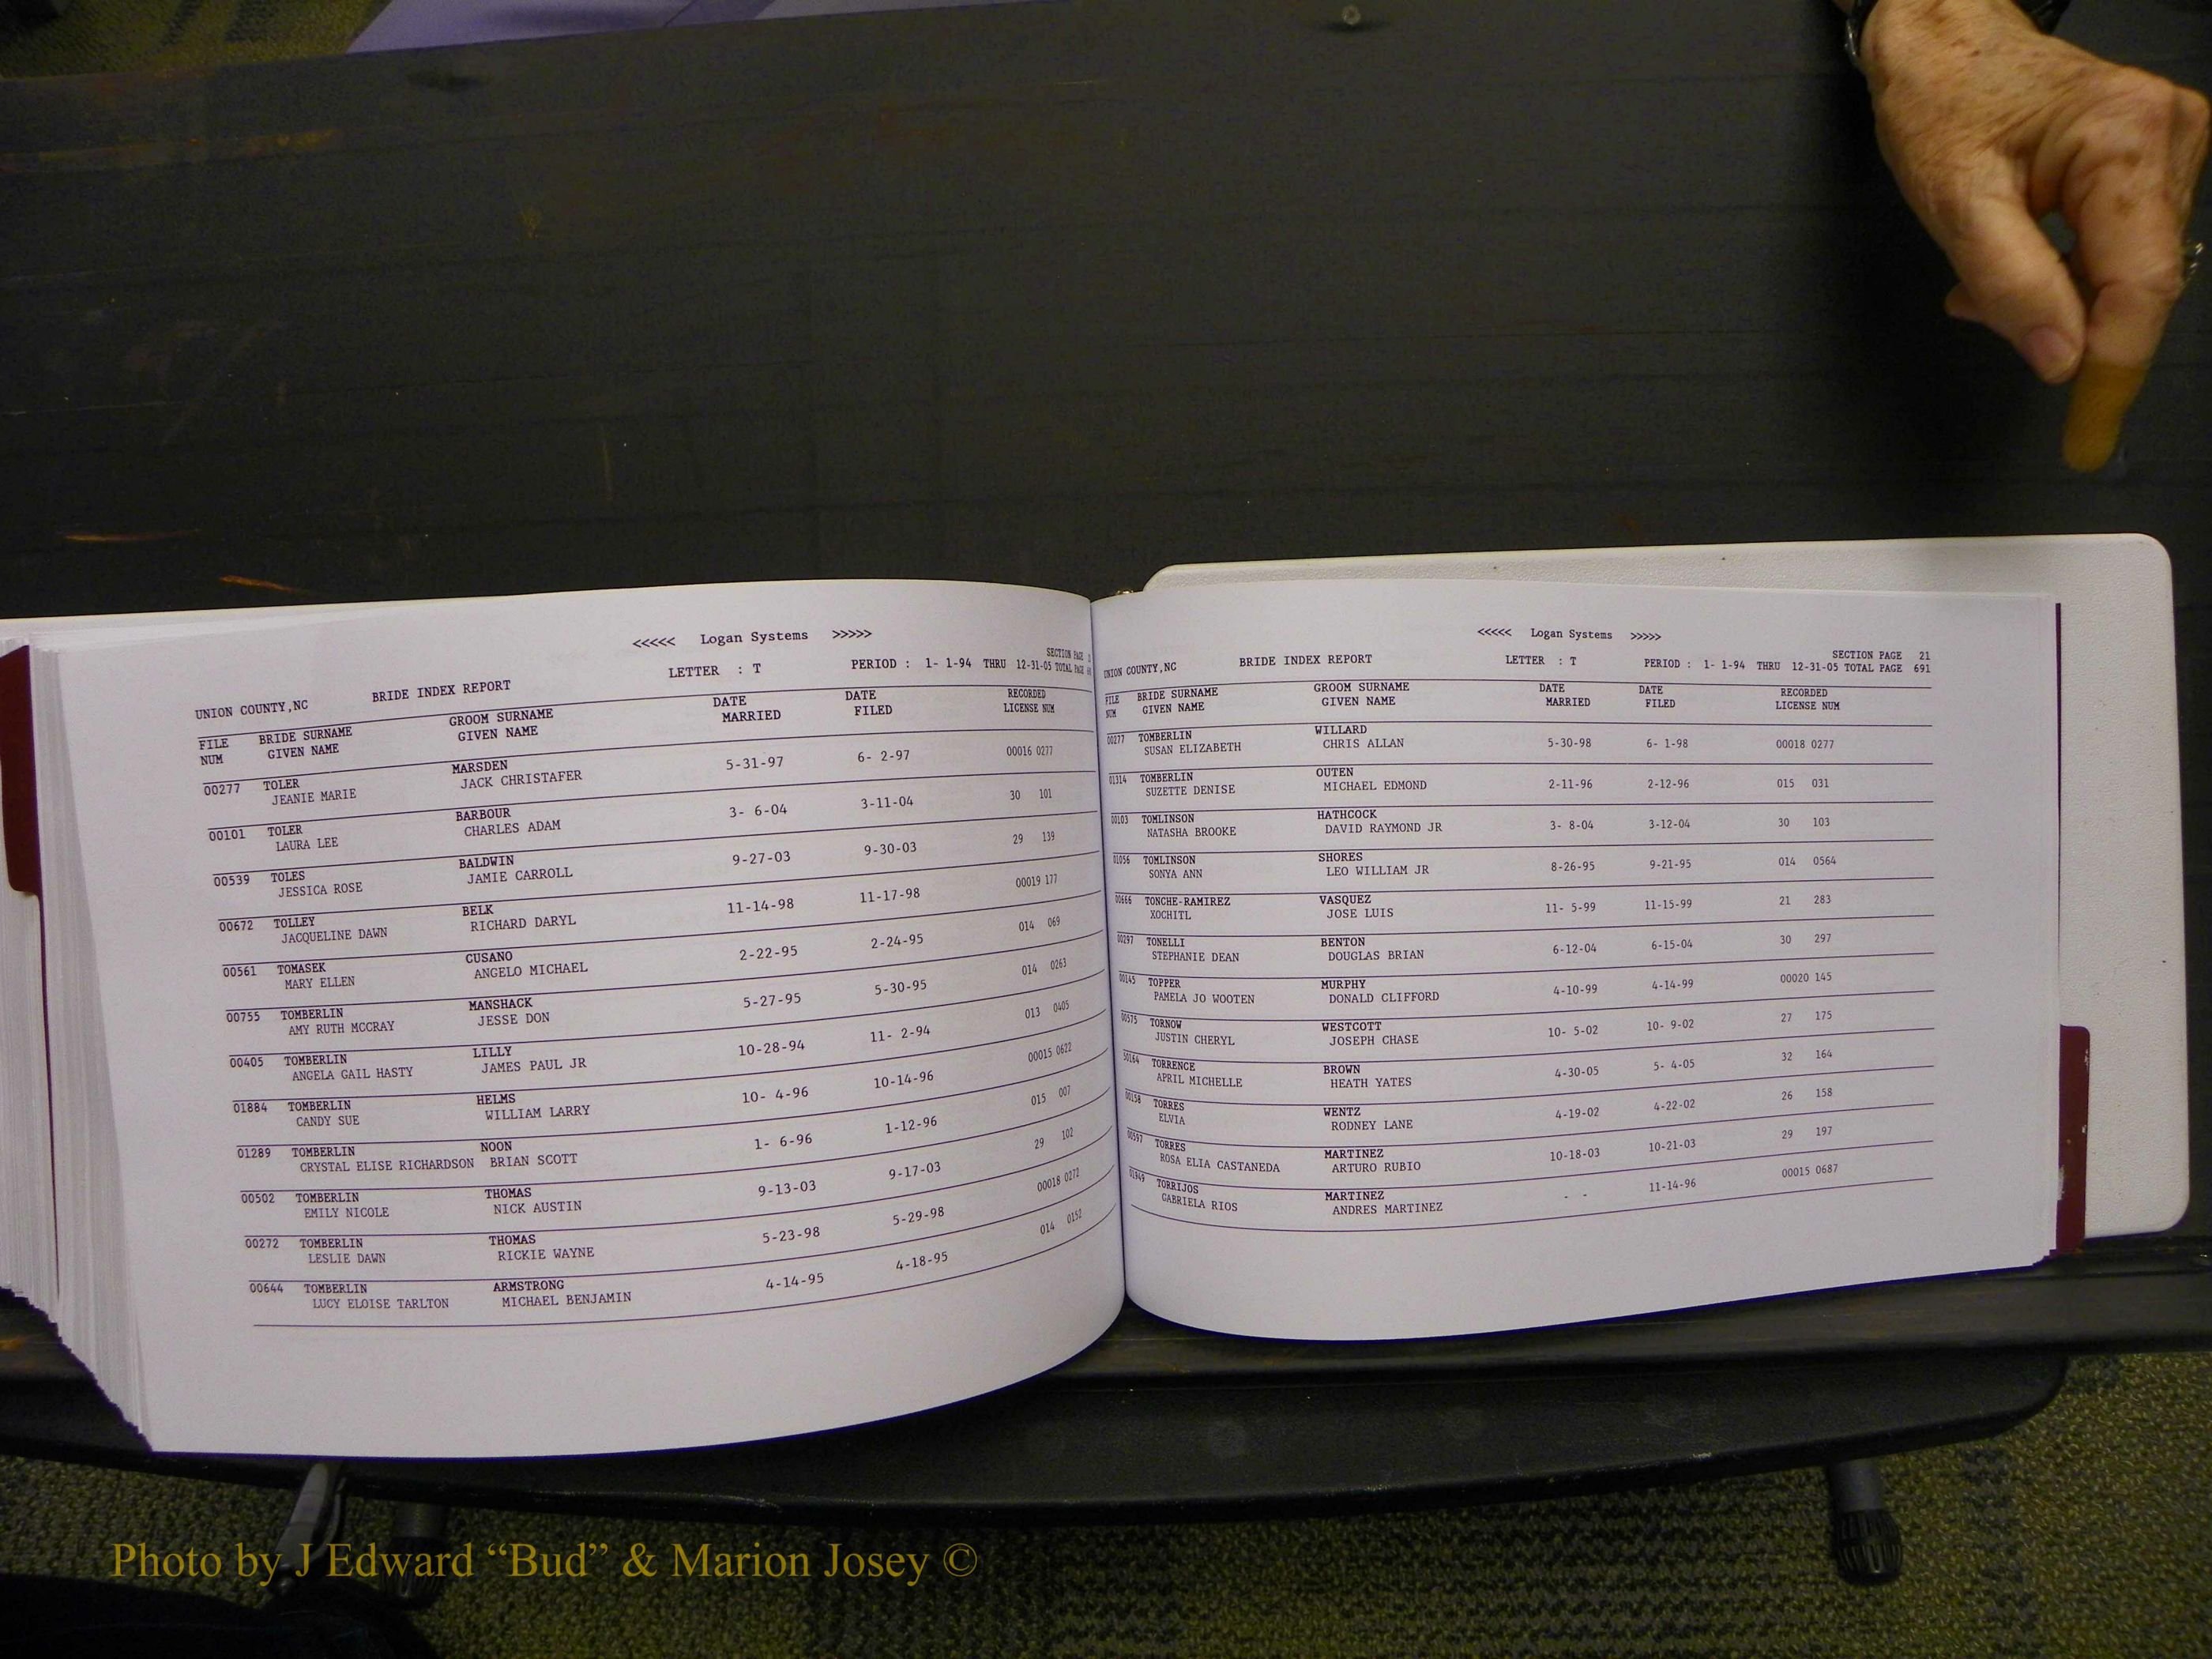 <<<<< Logan Systems >>>>>
SECTION PAGE
UNION COUNTY,NC BRIDE INDEX REPORT LETTER : T PERIOD : 1- 1-94 THRU 12-31-05 TOTAL PAGE
FILE BRIDE SURNAME GROOM SURNAME DATE DATE RECORDED
NUM GIVEN NAME GIVEN NAME MARRIED FILED LICENSE NUM
00277 TOLER MARSDEN 5-31-97 6- 2-97 00016 0277
JEANIE MARIE JACK CHRISTAFER
00101 TOLER BARBOUR 3- 6-04 3-11-04 30 101
LAURA LEE CHARLES ADAM
00539 TOLES BALDWIN 9-27-03 9-30-03 29 139
JESSICA ROSE JAMIE CARROLL
00672 TOLLEY BELK 11-14-98 11-17-98 00019 177
JACQUELINE DAWN RICHARD DARYL
00561 TOMASEK CUSANO 2-22-95 2-24-95 014 069
MARY ELLEN ANGELO MICHAEL
00755 TOMBERLIN MANSHACK 5-27-95 5-30-95 014 0263
AMY RUTH MCCRAY JESSE DON
00405 TOMBERLIN LILLY 10-28-94 11- 2-94 013 0405
ANGELA GAIL HASTY JAMES PAUL JR
01884 TOMBERLIN HELMS 10- 4-96 10-14-96 00015 0622
CANDY SUE WILLIAM LARRY
01289 TOMBERLIN NOON 1- 6-96 1-12-96 015 007
CRYSTAL ELISE RICHARDSON BRIAN SCOTT
00502 TOMBERLIN THOMAS 9-13-03 9-17-03 29 102
EMILY NICOLE NICK AUSTIN
00272 TOMBERLIN THOMAS 5-23-98 5-29-98 00018 0272
LESLIE DAWN RICKIE WAYNE
00644 TOMBERLIN ARMSTRONG 4-14-95 4-18-95 014 0152
LUCY ELOISE TARLTON MICHAEL BENJAMIN
<<<<< Logan Systems >>>>>
SECTION PAGE 21
UNION COUNTY,NC BRIDE INDEX REPORT LETTER : T PERIOD : 1- 1-94 THRU 12-31-05 TOTAL PAGE 691
FILE BRIDE SURNAME GROOM SURNAME DATE DATE RECORDED
NUM GIVEN NAME GIVEN NAME MARRIED FILED LICENSE NUM
00277 TOMBERLIN WILLARD 5-30-98 6- 1-98 00018 0277
SUSAN ELIZABETH CHRIS ALLAN
01314 TOMBERLIN OUTEN 2-11-96 2-12-96 015 031
SUZETTE DENISE MICHAEL EDMOND
00103 TOMLINSON HATHCOCK 3- 8-04 3-12-04 30 103
NATASHA BROOKE DAVID RAYMOND JR
01056 TOMLINSON SHORES 8-26-95 9-21-95 014 0564
SONYA ANN LEO WILLIAM JR
00666 TONCHE-RAMIREZ VASQUEZ 11- 5-99 11-15-99 21 283
XOCHITL JOSE LUIS
00297 TONELLI BENTON 6-12-04 6-15-04 30 297
STEPHANIE DEAN DOUGLAS BRIAN
00145 TOPPER MURPHY 4-10-99 4-14-99 00020 145
PAMELA JO WOOTEN DONALD CLIFFORD
00575 TORNOW WESTCOTT 10- 5-02 10- 9-02 27 175
JUSTIN CHERYL JOSEPH CHASE
50164 TORRENCE BROWN 4-30-05 5- 4-05 32 164
APRIL MICHELLE HEATH YATES
00158 TORRES WENTZ 4-19-02 4-22-02 26 158
ELVIA RODNEY LANE
00597 TORRES MARTINEZ 10-18-03 10-21-03 29 197
ROSA ELIA CASTANEDA ARTURO RUBIO
01949 TORRIJOS MARTINEZ - - 11-14-96 00015 0687
GABRIELA RIOS ANDRES MARTINEZ
Photo by J Edward “Bud” & Marion Josey ©